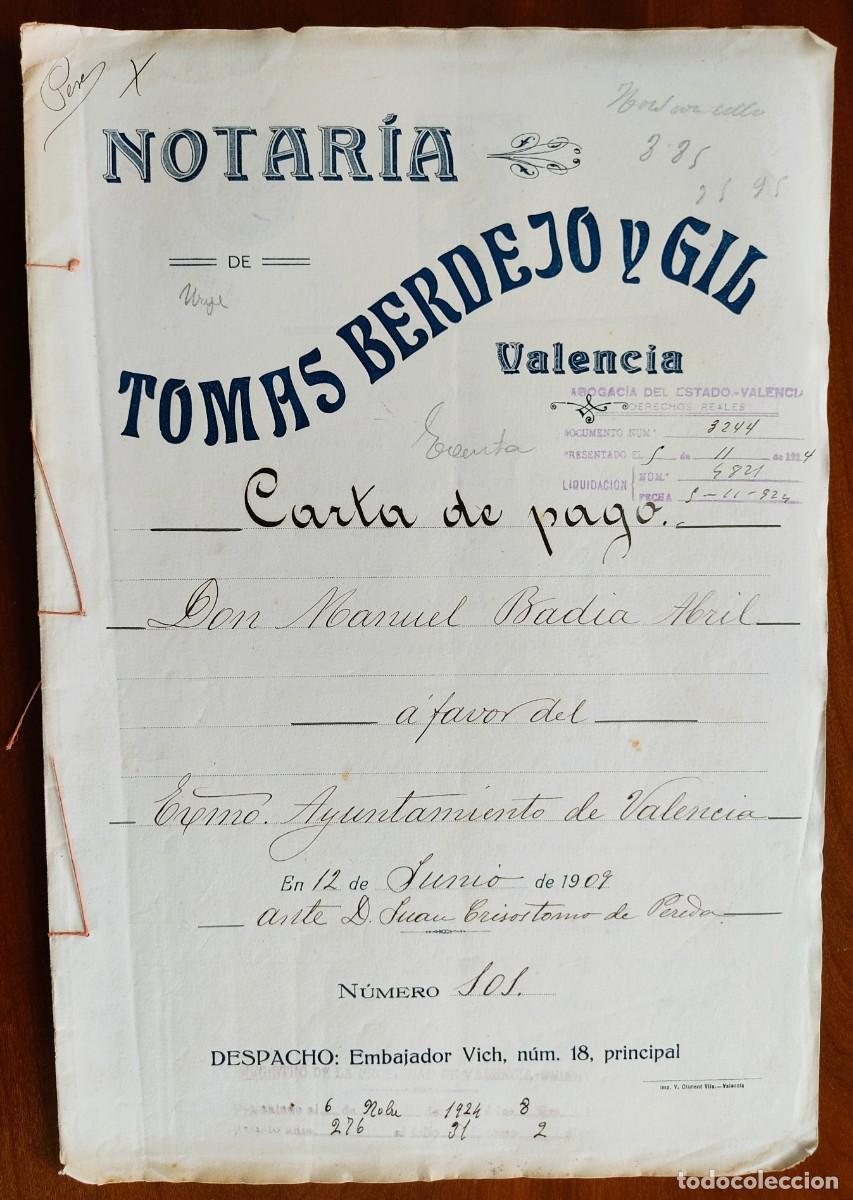 Pere X
NOTARÍA
3 85
25 95
DE
Urge
TOMAS BERDEJO Y GIL
Valencia
ABOGACÍA DEL ESTADO.-VALENCIA
DERECHOS REALES
DOCUMENTO NUM. 3244
PRESENTADO EL 5 de 11 de 1924
LIQUIDACIÓN NÚM. 4821
FECHA 5-11-924
Exenta
Carta de pago.
Don Manuel Badia Abril
á favor del
Exmo. Ayuntamiento de Valencia
En 12 de Junio de 1909
ante D. Juan Crisostomo de Pereda
NÚMERO 505.
DESPACHO: Embajador Vich, núm. 18, principal
Imp. V. Climent Vila.—Valencia
6 Nobre 1924 8
276 31 2
todocoleccion